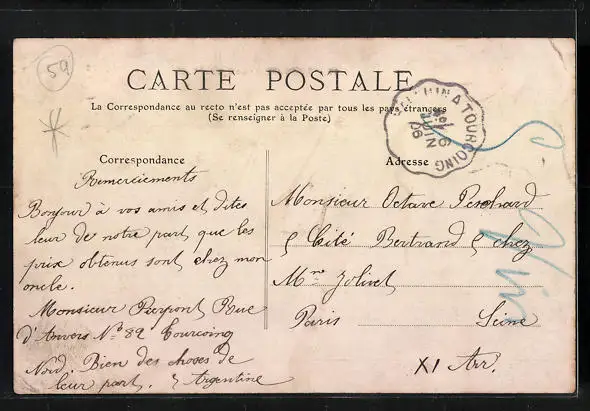 59
CARTE POSTALE
La Correspondance au recto n'est pas acceptée par tous les pays étrangers
(Se renseigner à la Poste)
A TOURCOING
6
JUIN
06
Correspondance
Remerciements
Bonjour à vos amis et dites
leur de notre part que les
prix obtenus sont chez mon
oncle.
Monsieur Pierpont Rue
d'Anvers No 82 Tourcoing
Nord. Bien des choses de
leur part. Argentine
Adresse
Monsieur Octave
5 Cité Bertrand 5 chez
Mme Jolivet
Paris Seine
XI Arr.